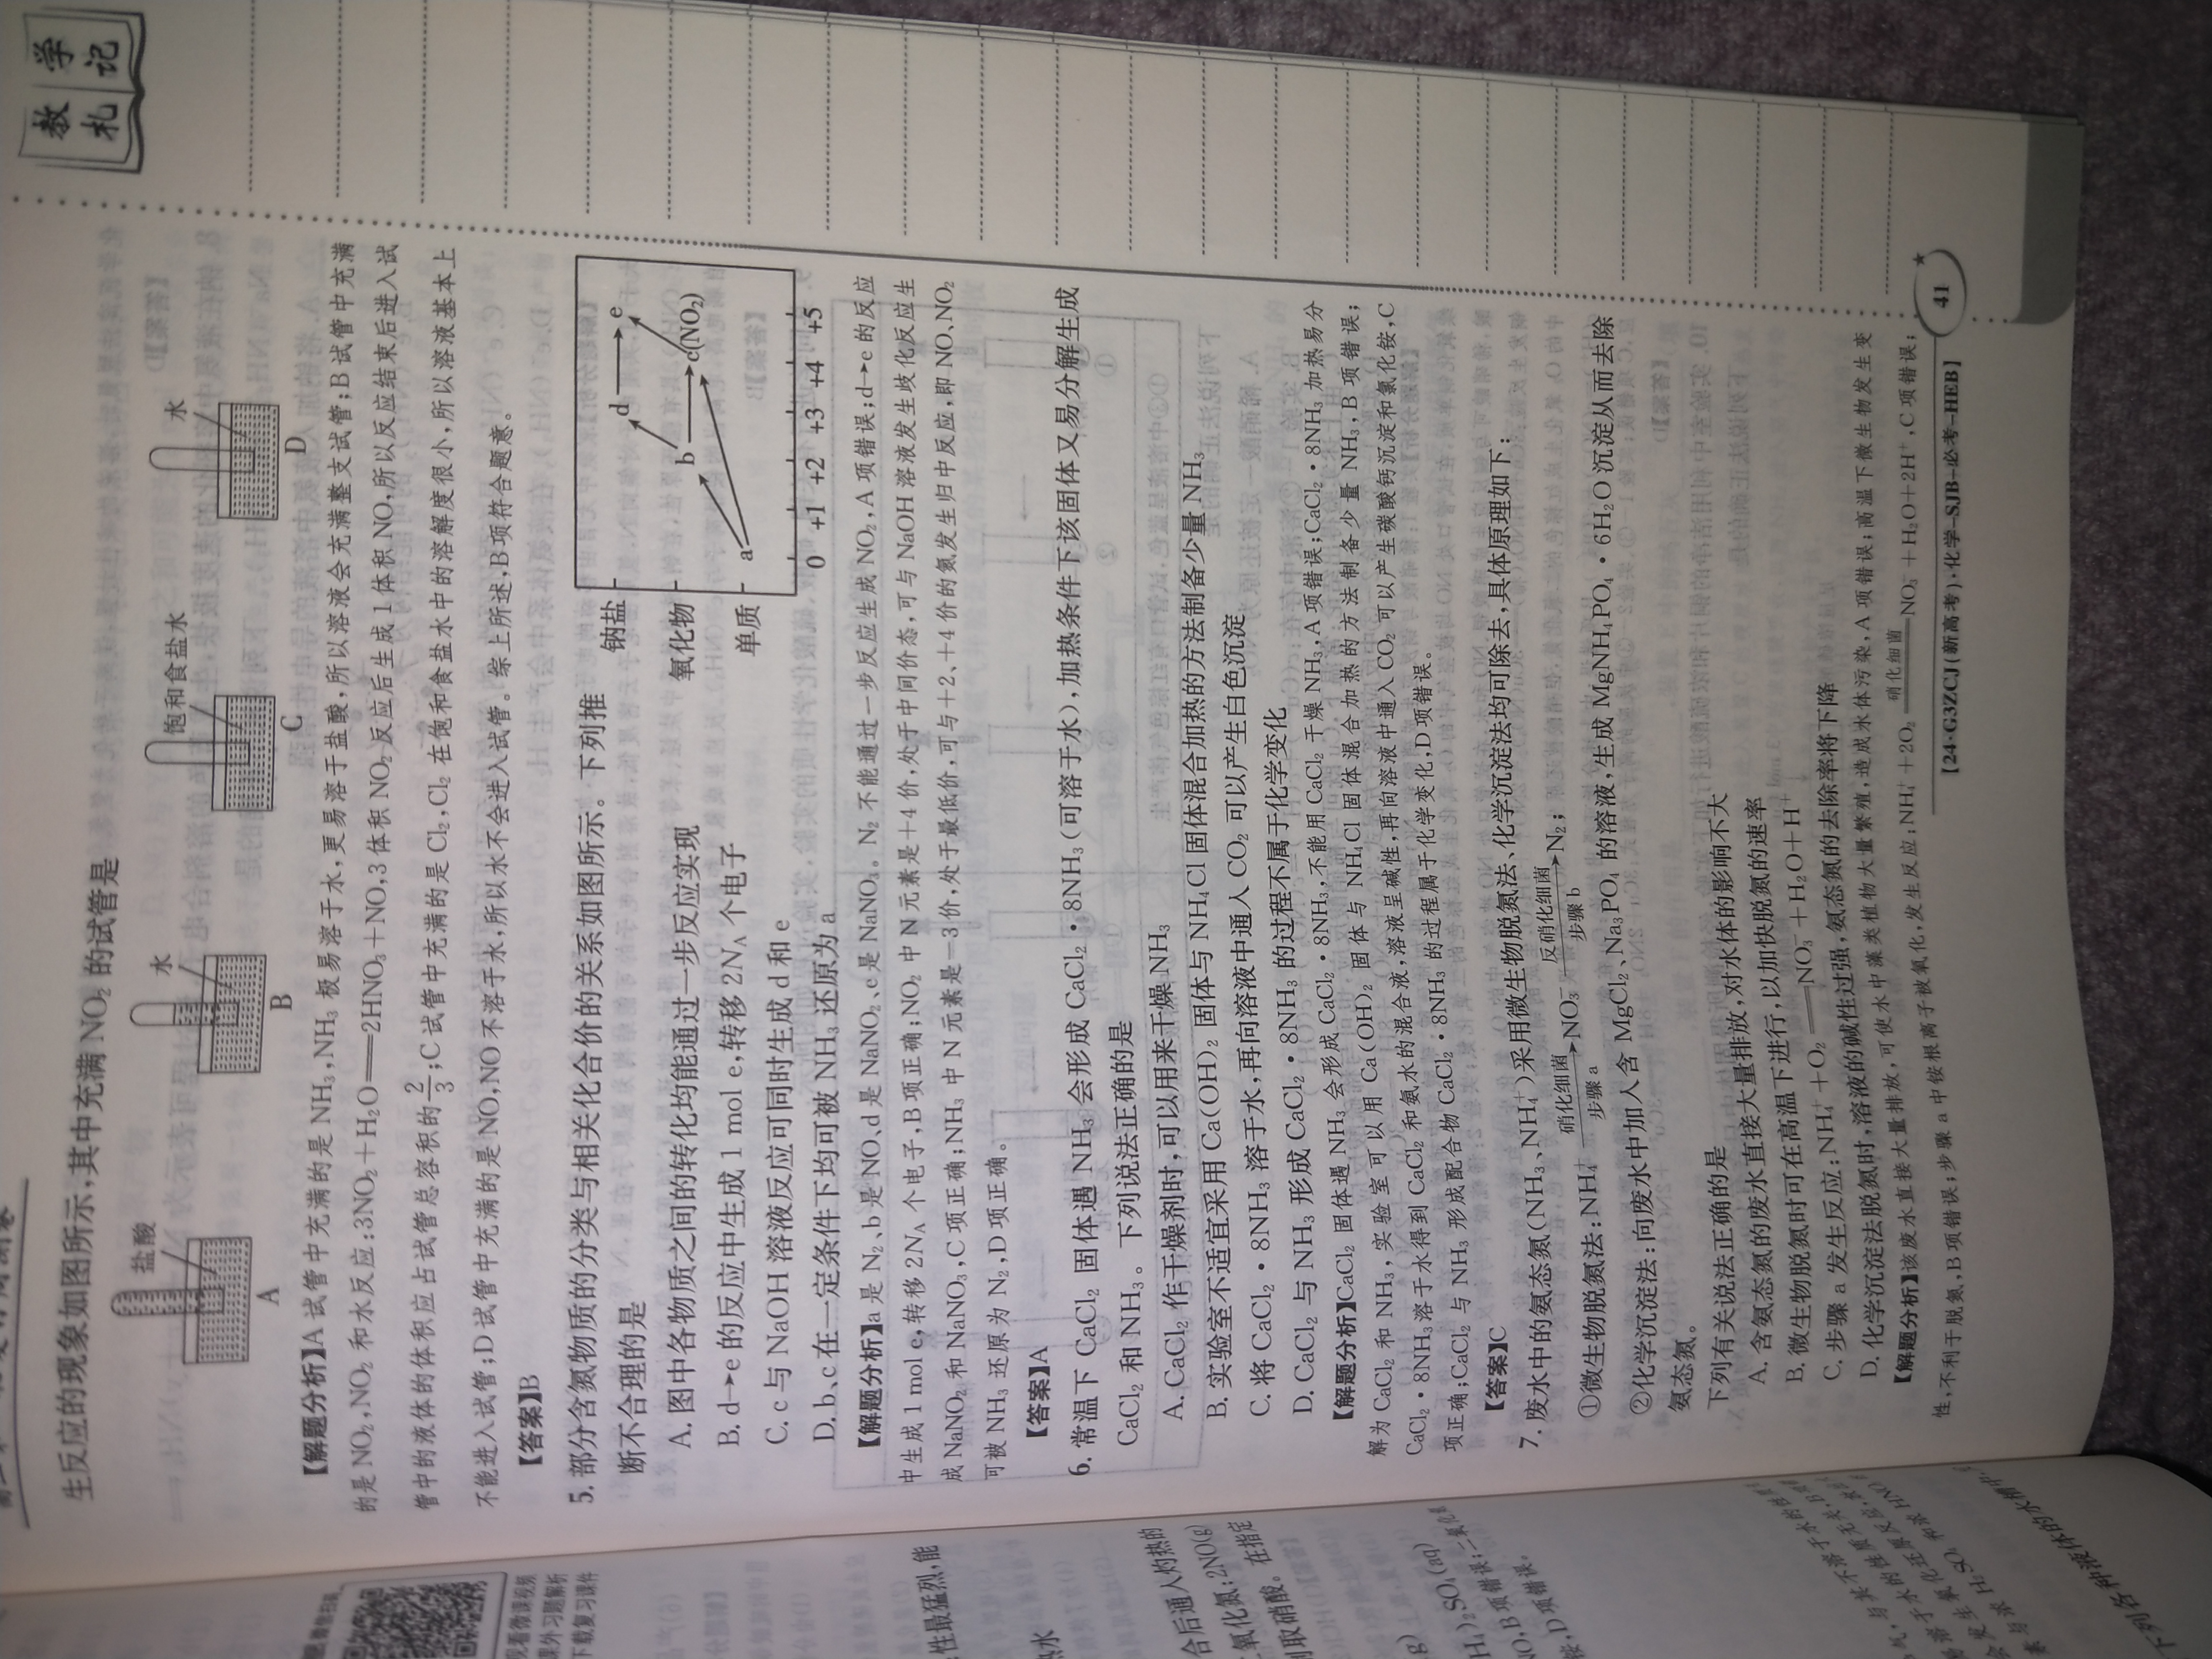 教学
札记
生反应的现象如图所示,其中充满 NO₂ 的试管是
盐酸 水 饱和食盐水 水
A B C D
【解题分析】A 试管中充满的是 NH₃,NH₃ 极易溶于水,更易溶于盐酸,所以溶液会充满整支试管;B 试管中充满
的是 NO₂,NO₂ 和水反应:3NO₂+H₂O══2HNO₃+NO,3 体积 NO₂ 反应后生成 1 体积 NO,所以反应结束后进入试
管中的液体的体积应占试管总容积的 2/3;C 试管中充满的是 Cl₂,Cl₂ 在饱和食盐水中的溶解度很小,所以溶液基本上
不能进入试管;D 试管中充满的是 NO,NO 不溶于水,所以水不会进入试管。综上所述,B 项符合题意。
【答案】B
5. 部分含氮物质的分类与相关化合价的关系如图所示。下列推
断不合理的是
A. 图中各物质之间的转化均能通过一步反应实现
B. d→e 的反应中生成 1 mol e,转移 2Nᴀ 个电子
C. c 与 NaOH 溶液反应可同时生成 d 和 e
D. b、c 在一定条件下均可被 NH₃ 还原为 a
钠盐
氧化物
单质
d e
b c(NO₂)
a
0 +1 +2 +3 +4 +5
【解题分析】a 是 N₂、b 是 NO、d 是 NaNO₂、e 是 NaNO₃。N₂ 不能通过一步反应生成 NO₂,A 项错误;d→e 的反应
中生成 1 mol e,转移 2Nᴀ 个电子,B 项正确;NO₂ 中 N 元素是+4 价,处于中间价态,可与 NaOH 溶液发生歧化反应生
成 NaNO₂ 和 NaNO₃,C 项正确;NH₃ 中 N 元素是-3 价,处于最低价,可与+2、+4 价的氮发生归中反应,即 NO、NO₂
可被 NH₃ 还原为 N₂,D 项正确。
【答案】A
6. 常温下 CaCl₂ 固体遇 NH₃ 会形成 CaCl₂・8NH₃(可溶于水),加热条件下该固体又易分解生成
CaCl₂ 和 NH₃。下列说法正确的是
A. CaCl₂ 作干燥剂时,可以用来干燥 NH₃
B. 实验室不适宜采用 Ca(OH)₂ 固体与 NH₄Cl 固体混合加热的方法制备少量 NH₃
C. 将 CaCl₂・8NH₃ 溶于水,再向溶液中通入 CO₂ 可以产生白色沉淀
D. CaCl₂ 与 NH₃ 形成 CaCl₂・8NH₃ 的过程不属于化学变化
【解题分析】CaCl₂ 固体遇 NH₃ 会形成 CaCl₂・8NH₃,不能用 CaCl₂ 干燥 NH₃,A 项错误;CaCl₂・8NH₃ 加热易分
解为 CaCl₂ 和 NH₃,实验室可以用 Ca(OH)₂ 固体与 NH₄Cl 固体混合加热的方法制备少量 NH₃,B 项错误;
CaCl₂・8NH₃ 溶于水得到 CaCl₂ 和氨水的混合液,溶液呈碱性,再向溶液中通入 CO₂ 可以产生碳酸钙沉淀和氯化铵,C
项正确;CaCl₂ 与 NH₃ 形成配合物 CaCl₂・8NH₃ 的过程属于化学变化,D 项错误。
【答案】C
7. 废水中的氨态氮(NH₃、NH₄⁺)采用微生物脱氮法、化学沉淀法均可除去,具体原理如下:
①微生物脱氮法:NH₄⁺ 硝化细菌 步骤 a→NO₃⁻ 反硝化细菌 步骤 b→N₂;
②化学沉淀法:向废水中加入含 MgCl₂、Na₃PO₄ 的溶液,生成 MgNH₄PO₄・6H₂O 沉淀从而去除
氨态氮。
下列有关说法正确的是
A. 含氨态氮的废水直接大量排放,对水体的影响不大
B. 微生物脱氮时可在高温下进行,以加快脱氮的速率
C. 步骤 a 发生反应:NH₄⁺+O₂══NO₃⁻+H₂O+H⁺
D. 化学沉淀法脱氮时,溶液的碱性过强,氨态氮的去除率将下降
【解题分析】该废水直接大量排放,可使水中藻类植物大量繁殖,造成水体污染,A 项错误;高温下微生物发生变
性,不利于脱氮,B 项错误;步骤 a 中铵根离子被氧化,发生反应:NH₄⁺+2O₂ 硝化细菌══NO₃⁻+H₂O+2H⁺,C 项错误;
41
【24·G3ZCJ(新高考)·化学-SJB-必考-HEB】
性最猛烈,能
热水
合后通入灼热的
二氧化氮:2NO(g)
制取硝酸。在指定
观看微课视频
课外习题解析
下载复习课件
NO,B 项错误;
D 项错误。
下列各种液体的水槽中,